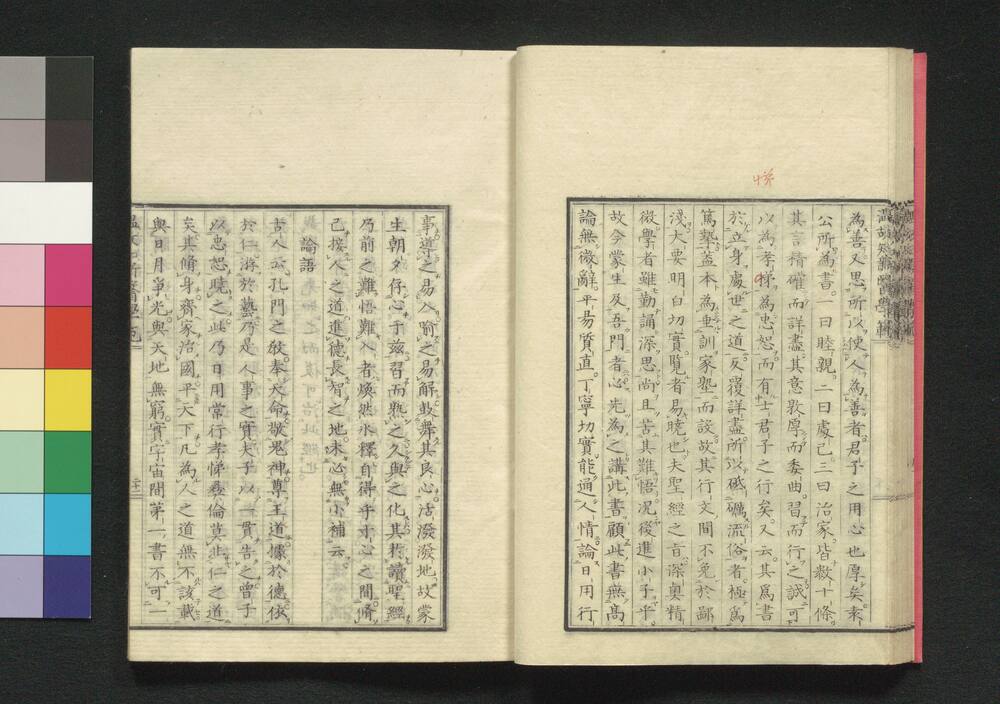 為善又思所以使人為善者君子之用心也厚矣袁
公所為書一曰睦親二曰處己三曰治家皆數十條
其言精確而詳盡其意敦厚而委曲習而行之誠可
以為孝悌為忠恕而有士君子之行矣又云其為書
於立身處世之道反覆詳盡所以砥礪流俗者極為
篤摯蓋本為垂訓家塾而設故其行文間不免於鄙
淺大要明白切實覽者易曉也夫聖經之旨深奧精
微學者雖勤誦深思尚且苦其難悟況後進小子乎
故今蒙生及吾門者必先為之講此書顧此書無高
論無微辭平易質直丁寧切實能通人情論日用行
悌
事導之易入喻之易解鼓舞其良心活潑潑地故蒙
生朝夕存心于茲習而熟之久與之化其於讀聖經
乃前之難悟難入者煥然氷釋自得乎寸心之間脩
己接人之道進德長智之地未必無小補云
論語
古人云孔門之敎奉天命敬鬼神尊王道據於德依
於仁游於藝乃是人事之實夫子以一貫告之曾子
以忠恕曉之此乃日用常行孝悌彝倫莫非仁之道
矣其脩身齊家治國平天下凡為人之道無不該載
與日月爭光與天地無窮實宇宙間第一書不可一